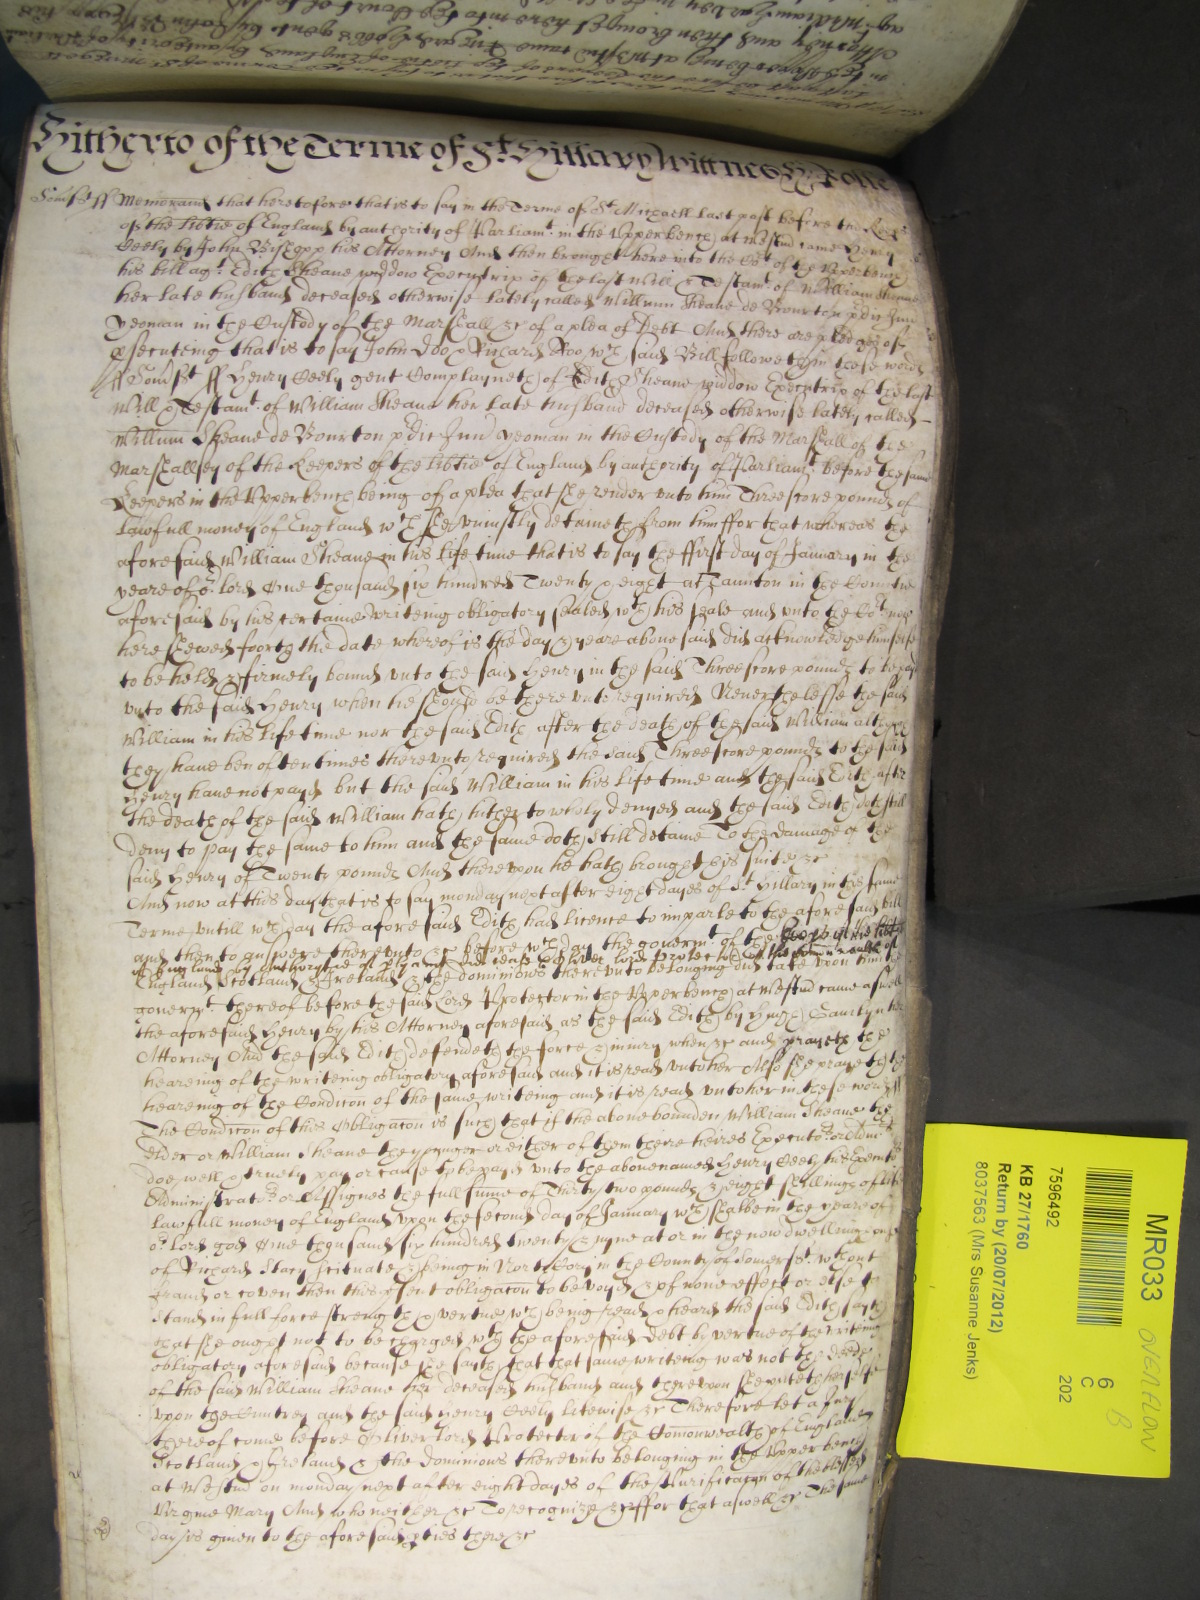 Hitherto of the Terme of St Hillary wittnes H Rolle
Somst ff Memorand that heretofore that is to say in the Terme of St Michaell last past before the Keeps
of the libtie of England by authority of Parliamt in the Upperbench at Westm came Henry
Ceely by John Bishopp his Attorney And then brought here into the Cot of the Upperbench
his bill agt Edith Sheane widdow Executrix of the last Will & Testamt of William Sheane
her late husband deceased otherwise lately called William Sheane de Bourton pdic Jun
yeoman in the Custody of the Marshall &c of a plea of Debt And there are pledges of
psecuteing that is to say John Doo & Richard Roo wch said Bill followeth in these words
ff Somst ff Henry Ceely gent Complayneth of Edith Sheane widdow Executrix of the last
Will & Testamt of William Sheane her late husband deceased otherwise lately called
William Sheane de Bourton pdic Jun yeoman in the Custody of the Marshall of the
Marshallsey of the Keepers of the libtie of England by authority of Parliamt before the said
Keepers in the Upperbench being of a plea that she render unto him Threescore pounds of
Lawfull money of England wch she uniustly detaineth from him ffor that whereas the
aforesaid William Sheane in his life time that is to say the ffirst day of January in the
yeare of or lord One thousand six hundred Twenty & eight at Taunton in the Countie
aforesaid by his certaine writeing obligatory sealed wth his seale and unto the Cot now
here shewed foorth the date whereof is the day & yeare above said did acknowledge himselfe
to be held & firmely bound unto the said Henry in the said Threescore pounds to be payd
unto the said Henry when he should be there unto required Neverthelesse the said
William in his life time nor the said Edith after the death of the said William although
they have ben often times thereunto required the said Threescore pounds to the said
Henry have not payd but the said William in his life time and the said Edith after
the death of the said William hath hitherto wholy denyed and the said Edith doth still
deny to pay the same to him and the same doth still detaine To the Damage of the
said Henry of Twenty pounds And thereupon he hath brought his suite &c
And now at this day that is to say monday next after eight dayes of St Hillary in this same
Terme untill wch day the aforesaid Edith had licence to imparle to the aforesaid bill
and then to answere thereunto &c before wch day the governmt of the keeps of the libtie
of England by authority of Parliamt ceased & Oliver lord Protector of the Comonwealth of
England Scotland & Ireland & the dominions thereunto belonging did take upon him the
governmt thereof before the said Lord Protector in the Upperbench at Westm came aswell
the aforesaid Henry by his Attorney aforesaid as the said Edith by Hugh her
Attorney And the said Edith defendeth the force & iniury when &c and prayeth the
heareing of the writeing obligatory aforesaid and it is read unto her Also she prayeth the
heareing of the Condicon of the same writeing and it is read unto her in these words ff
The Condicon of this Obligacon is such that if the above bounden William Sheane the
elder or William Sheane the younger or either of them there heires Executors or Admrs
doe well & truely pay or cause to be payd unto the abovenamed Henry Ceely his Executors
Administrators or Assignes the full sume of Thirty two pounds & eight shillings of
Lawfull money of England upon the second day of January wch shalbe in the yeare of
or lord god One thousand six hundred twenty & nyne at or in the now dwelling house
of Richard Stacy scituate & being in North Cory in the County of Somerset wthout
fraud or coven then this psent obligacon to be voyd & of none effect or else to
stand in full force strength & vertue wch being read & heard the said Edith sayth
that she ought not to be charged wth the aforesaid debt by vertue of the writeing
obligatory aforesaid because she saith that that same writeing was not the deede
of the said William Sheane her deceased husband and thereupon she putteth her selfe
upon the Cuntrey and the said Henry Ceely likewise &c Therefore let a Jury
thereof come before Oliver lord Protector of the Comonwealth of England
Scotland & Ireland & the Dominions thereunto belonging in the Upperbench
at Westm on monday next after eight dayes of the Purificacon of the blessed
Virgine Mary And who neither &c To recognize &c ffor that aswell &c The same
day is given to the aforesaid pties there &c
MR033
OVERFLOW
B
6
C
202
7596492
KB 27/1760
Return by (20/07/2012)
8037563 (Mrs Susanne Jenks)